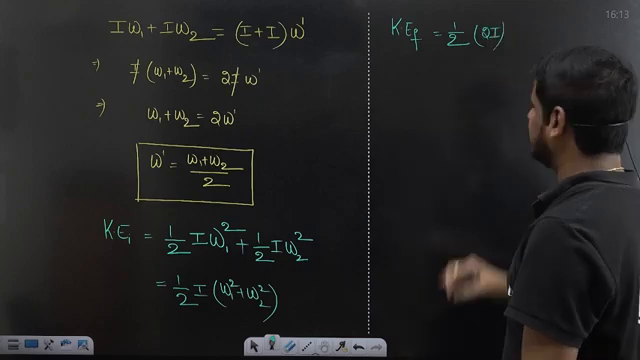 Iω₁ + Iω₂ = (I + I) ω'
⇒ I (ω₁+ω₂) = 2I ω'
⇒ ω₁ + ω₂ = 2ω'
ω' = (ω₁+ω₂)/2
K·Eᵢ = 1/2 Iω₁² + 1/2 Iω₂²
= 1/2 I (ω₁² + ω₂²)
K·E_f = 1/2 (2I)
16:13